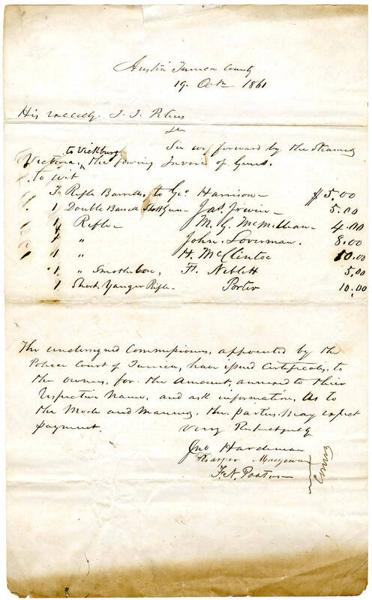 Austin Tunica County
19 Octr 1861
His Excellency J. J. Pettus
Sir
to Vicksburg
In we forward by the Steamer
Victoria, the following Invoice of Guns.
To wit
1 Rifle Barrell, to Geo Harrison $5.00
1 Double Barrell Shot Gun Jas. Irwin 5.00
1 Rifle M. G. McMillian 4.00
1 " John Loverman 8.00
1 " H. McClintoc 10.00
1 " Smoothbore, H. Neblett 5.00
1 Short Yauger Rifle Porter 10.00
The undersigned Commissioners, appointed by the
Police Court of Tunica, have issued Certificates, to
the owners, for the Amount, annexed to their
respective Names, and ask information, as to
the Mode and Manner, the parties may expect
payment.
Very Respectfully
Jno Hardeman
F. N. Porter